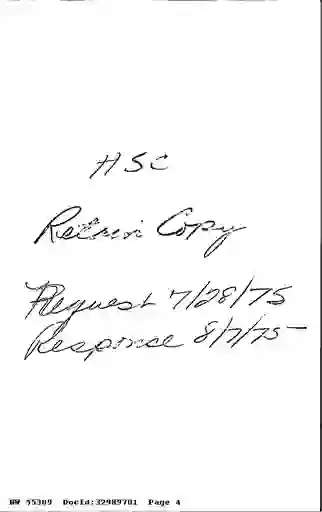 HSC
Retain Copy
Request 7/28/75
Response 8/7/75
NW 55309 DocId:32989701 Page 4